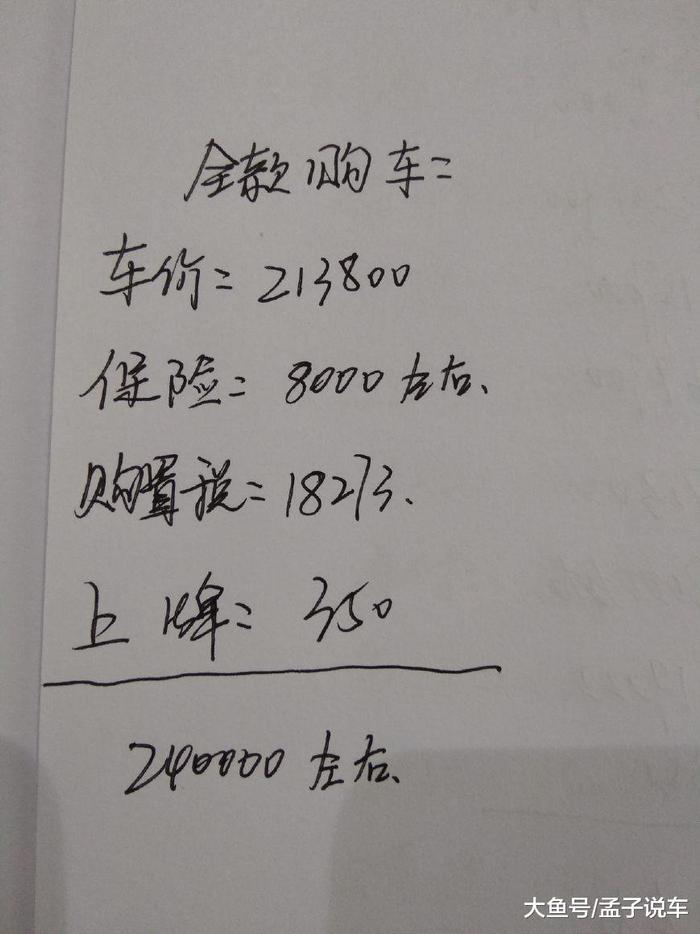 全款购车:
车价: 213800
保险: 8000左右、
购置税: 18273.
上牌: 350
240000左右、
大鱼号/孟子说车